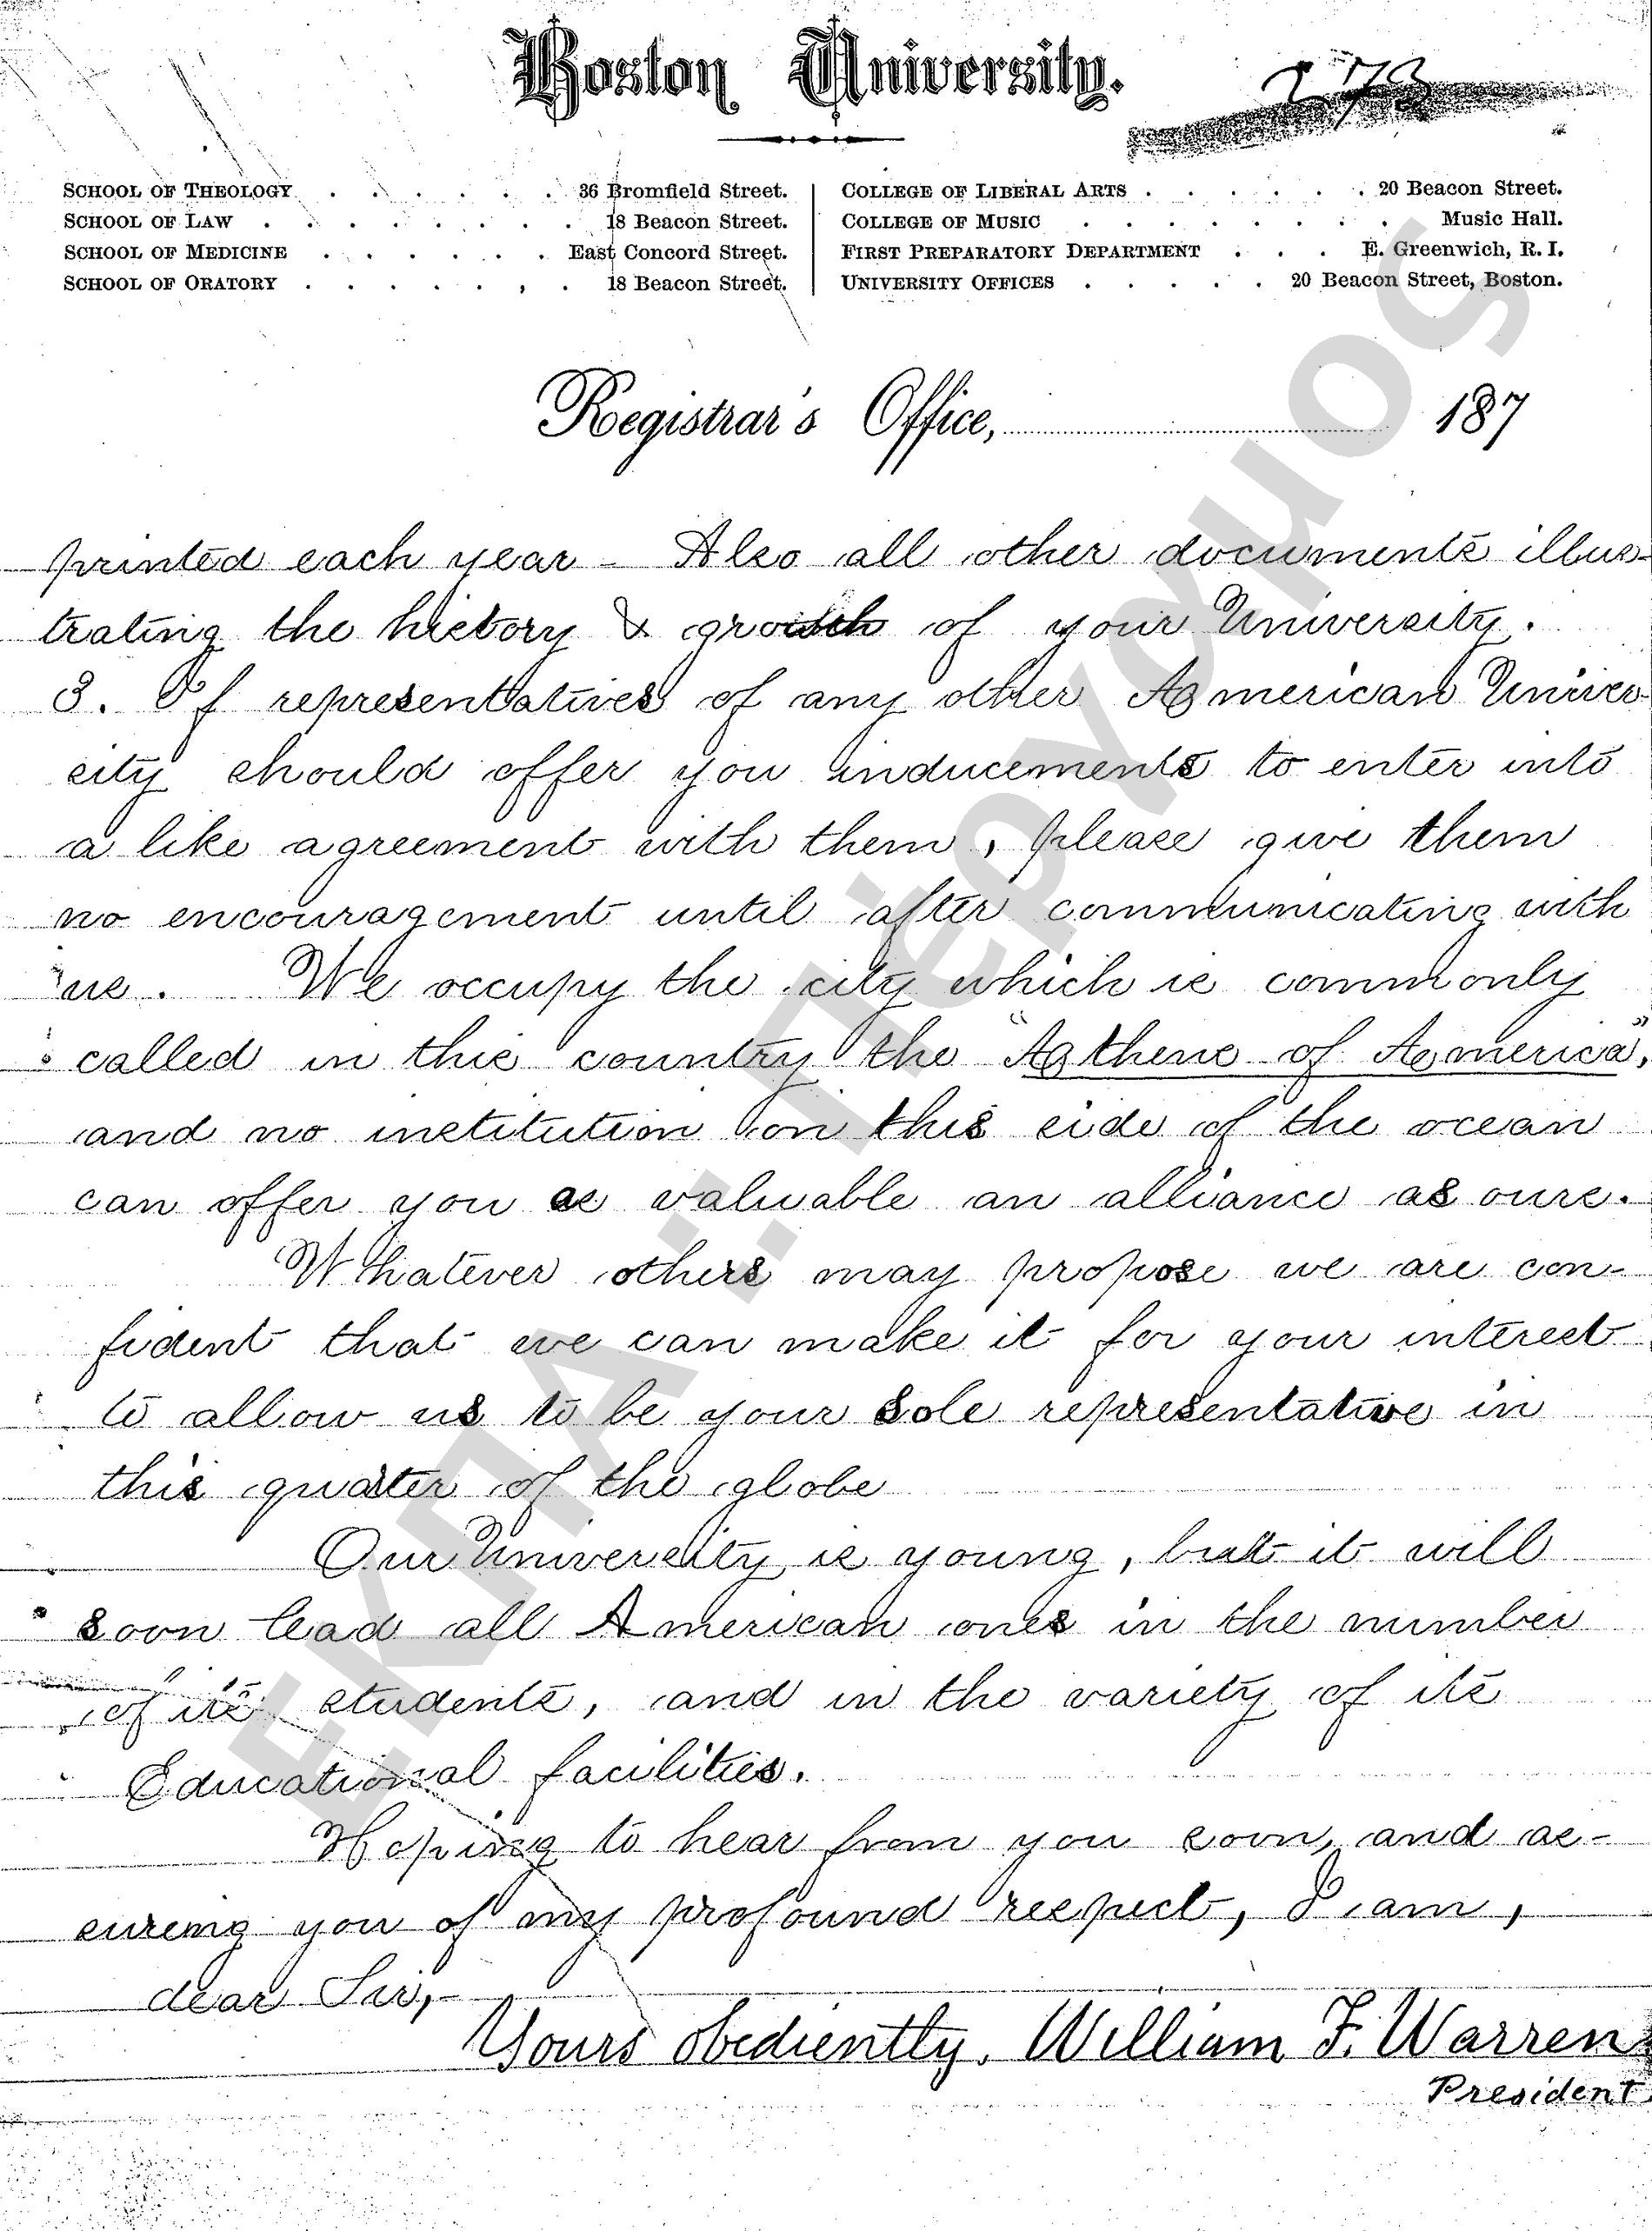 Boston University.
273
SCHOOL OF THEOLOGY . . . . . . 36 Bromfield Street.
SCHOOL OF LAW . . . . . . . . 18 Beacon Street.
SCHOOL OF MEDICINE . . . . . . East Concord Street.
SCHOOL OF ORATORY . . . . . . . 18 Beacon Street.
COLLEGE OF LIBERAL ARTS . . . . . . 20 Beacon Street.
COLLEGE OF MUSIC . . . . . . . . Music Hall.
FIRST PREPARATORY DEPARTMENT . . . E. Greenwich, R. I.
UNIVERSITY OFFICES . . . . . 20 Beacon Street, Boston.
Registrar's Office, 187
printed each year – Also all other documents illus-
trating the history & growth of your University.
3. If representatives of any other American Univer-
sity should offer you inducements to enter into
a like agreement with them, please give them
no encouragement until after communicating with
us. We occupy the city which is commonly
called in this country the "Athens of America",
and no institution on this side of the ocean
can offer you as valuable an alliance as ours.
Whatever others may propose we are con-
fident that we can make it for your interest
to allow us to be your sole representative in
this quarter of the globe
Our University is young, but it will
soon lead all American ones in the number
of its students, and in the variety of its
Educational facilities.
Hoping to hear from you soon, and as-
suring you of my profound respect, I am,
dear Sir,-
Yours obediently, William F. Warren
President
ΕΚΠΑ :: Πέργαμος